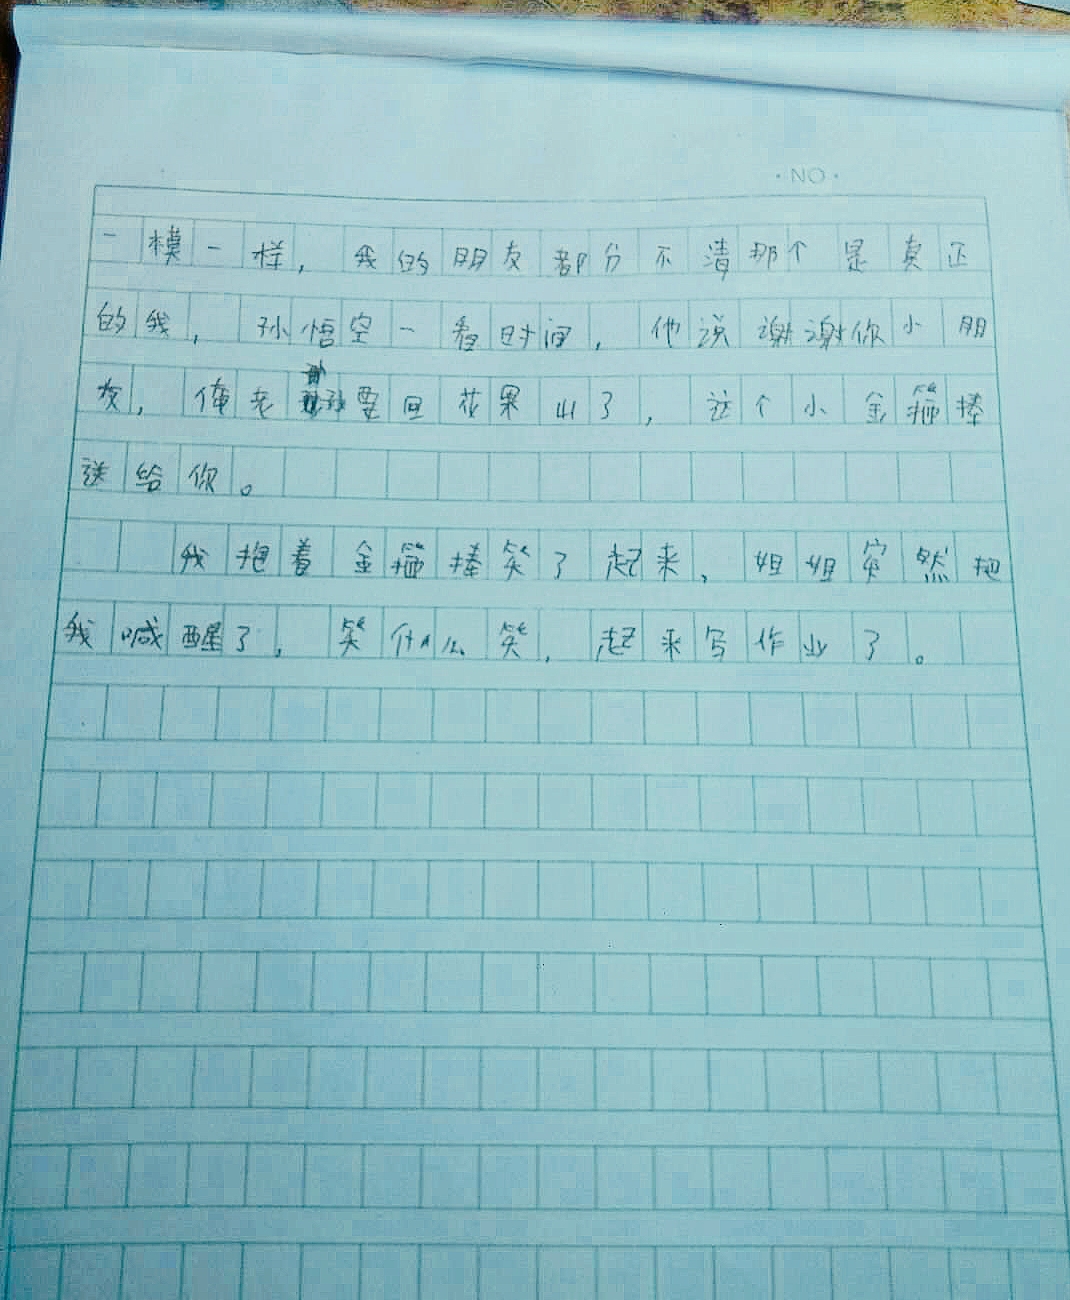 ·NO·
一模一样，我的朋友都分不清那个是真正
的我，孙悟空一看时间，他说谢谢你小朋
友，俺老孙要回花果山了，这个小金箍棒
送给你。
我抱着金箍棒笑了起来，姐姐突然把
我喊醒了，笑什么笑，起来写作业了。